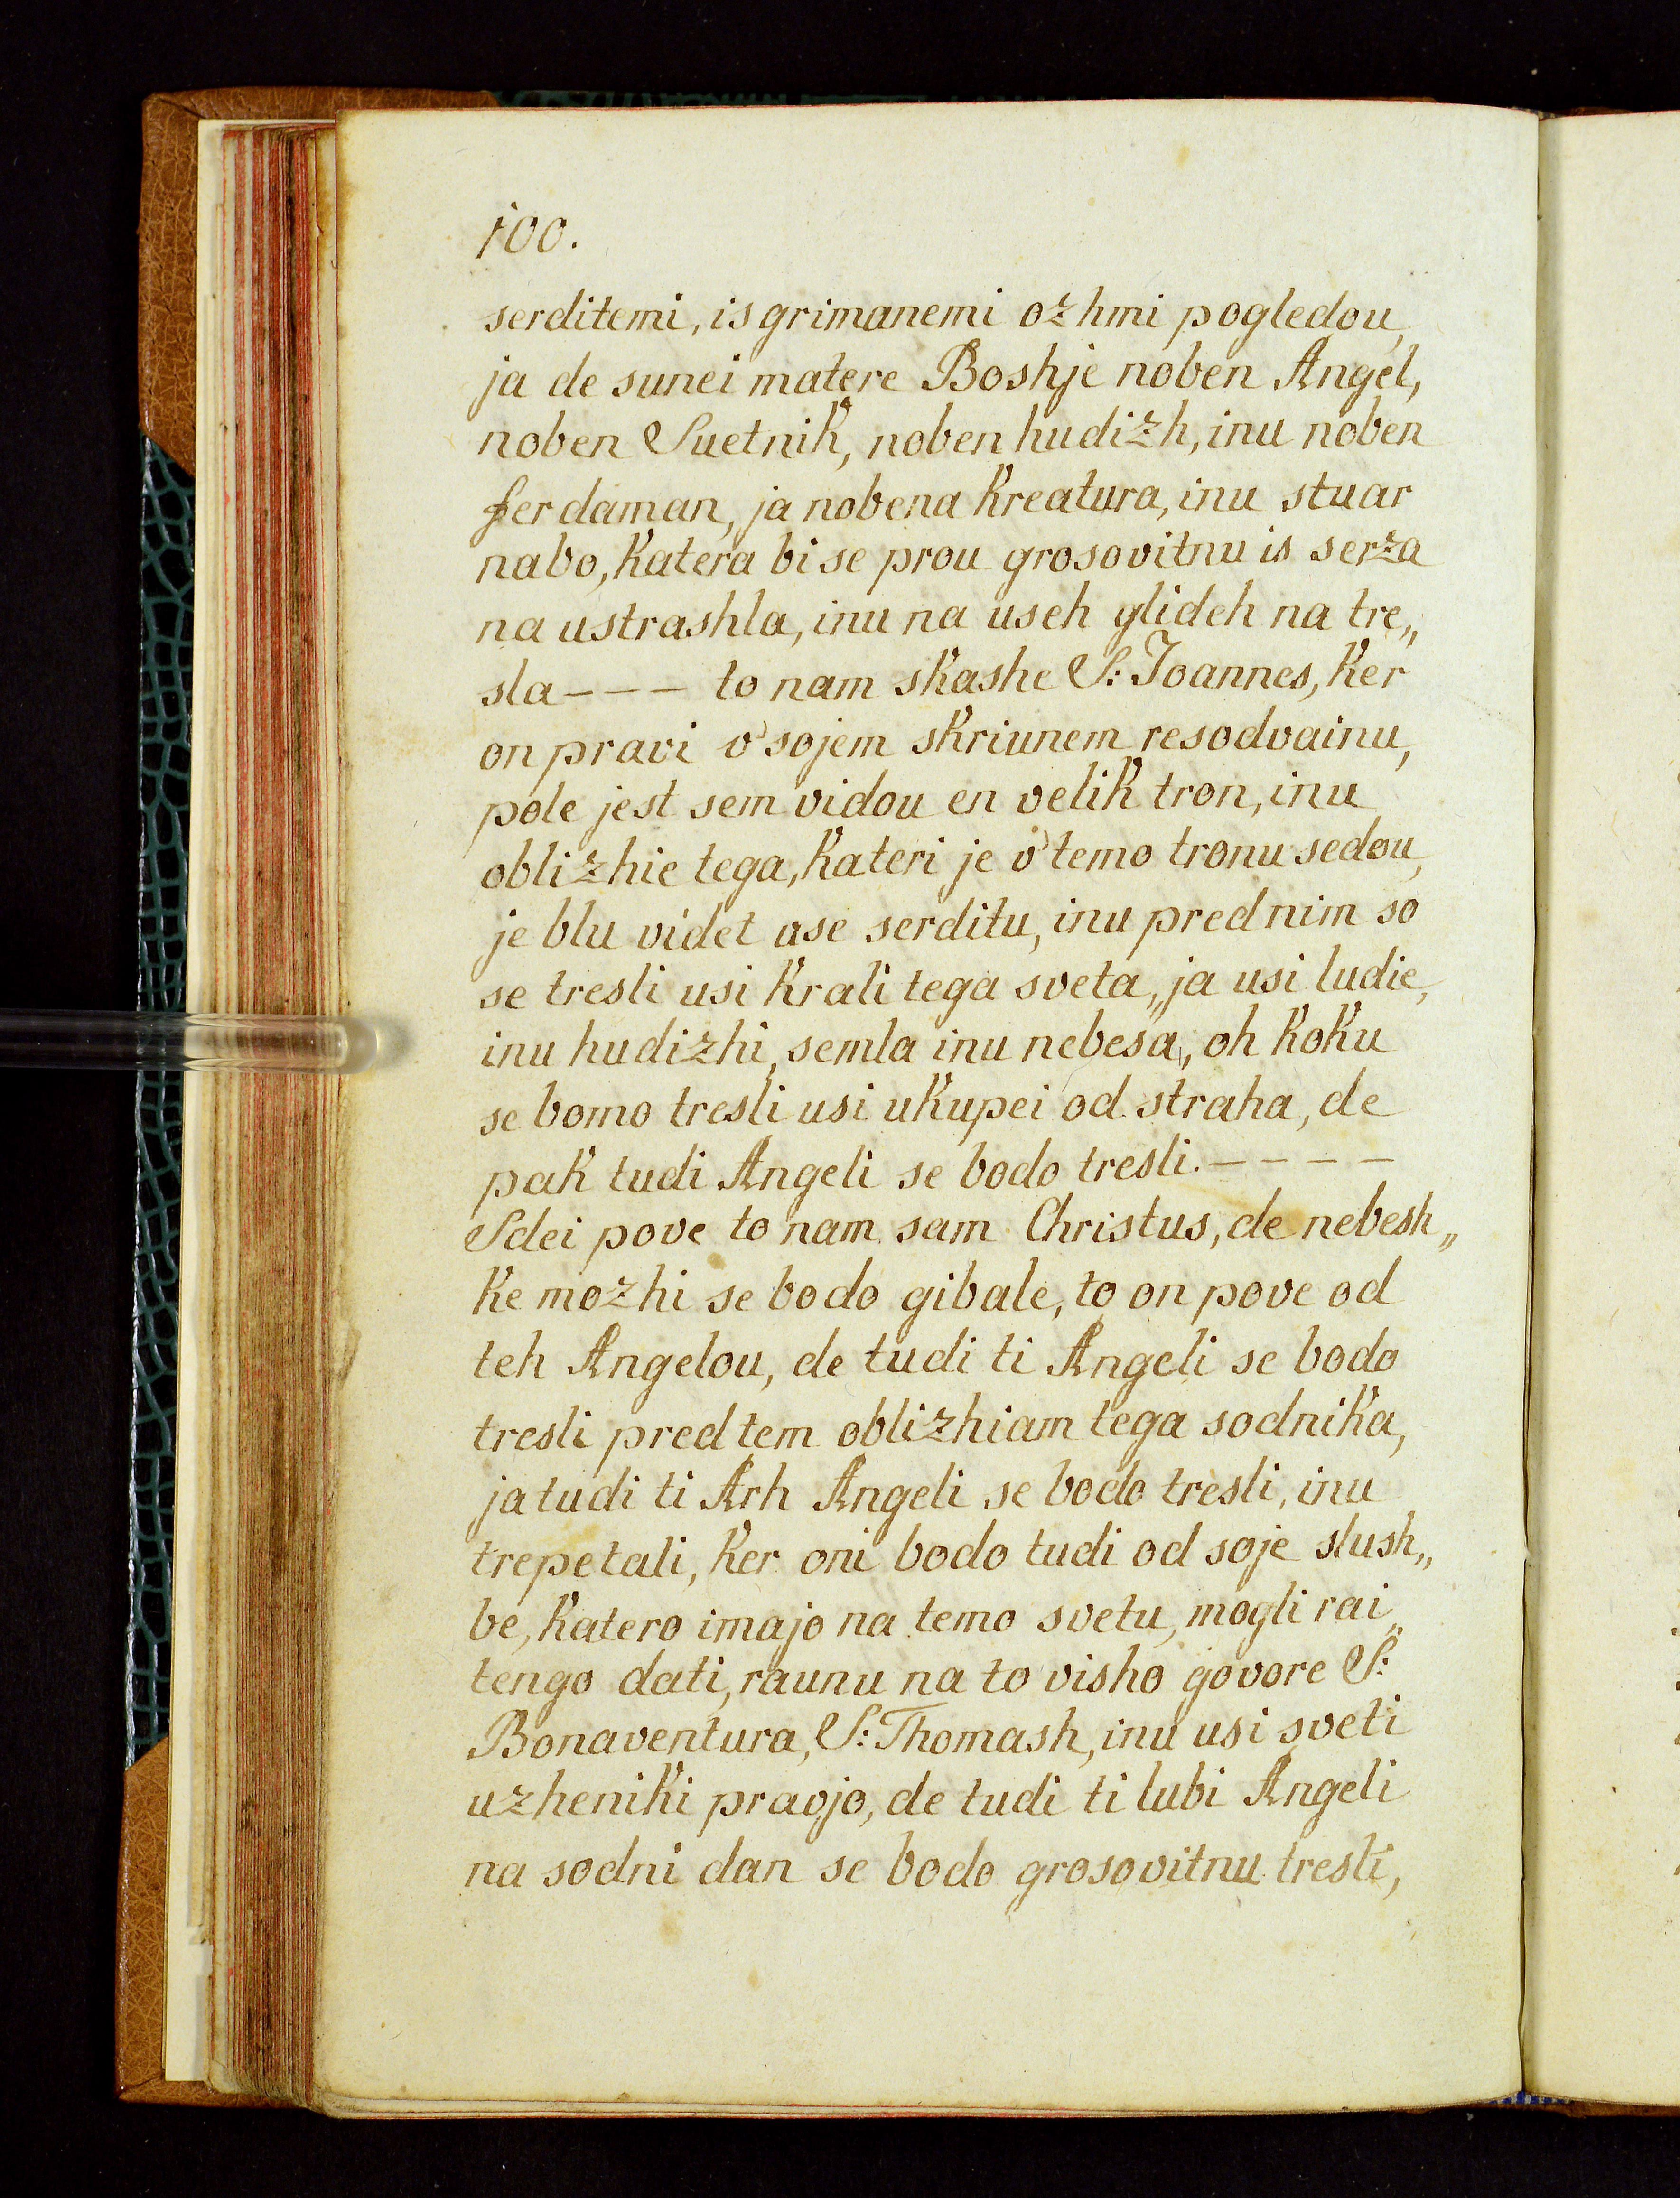 100.
serditemi, is grimanemi ozhmi pogledou,
ja de sunei matere Boshje noben Angel,
noben Suetnik, noben hudizh, inu noben
ferdaman, ja nobena kreatura, inu stuar
nabo, katera bi se prou grosovitnu is serza
na ustrashla, inu na useh glideh na tre„
sla - - - to nam skashe S: Joannes, ker
on pravi v' sojem skriunem resodvainu,
pole jest sem vidou en velik tron, inu
oblizhie tega, kateri je v' temo tronu sedou,
je blu videt use serditu, inu pred nim so
se tresli usi krali tega sveta, „ja usi ludie,
inu hudizhi, semla inu nebesa, oh koku
se bomo tresli usi ukupei od straha, de
pak tudi Angeli se bodo tresli. - - - -
Sdei pove to nam sam Christus, de nebesh„
ke mozhi se bodo gibale, to on pove od
teh Angelou, de tudi ti Angeli se bodo
tresli pred tem oblizhiam tega sodnika,
ja tudi ti Arh Angeli se bodo tresli, inu
trepetali, ker oni bodo tudi od soje slush„
be, katero imajo na temo svetu, mogli rai„
tengo dati, raunu na to visho govore S:
Bonaventura, S: Thomash, inu usi sveti
uzheniki pravjo, de tudi ti lubi Angeli
na sodni dan se bodo grosovitnu tresli,